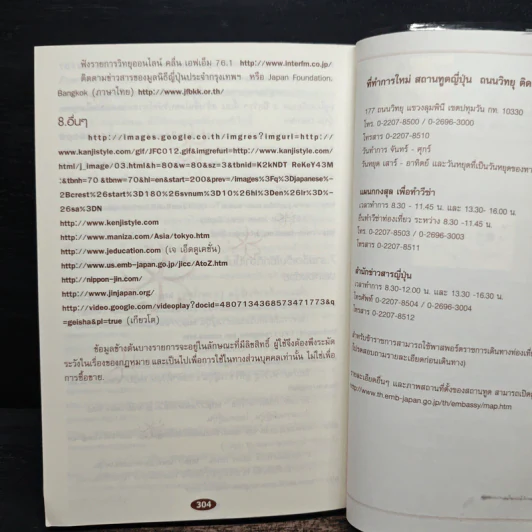 ฟังรายการวิทยุออนไลน์ คลื่น เอฟเอ็ม 76.1 http://www.interfm.co.jp/
ติดตามข่าวสารของมูลนิธิญี่ปุ่นประจำกรุงเทพฯ หรือ Japan Foundation,
Bangkok (ภาษาไทย) http://www.jfbkk.or.th/
8.อื่นๆ
http://images.google.co.th/imgres?imgurl=http://
www.kenjistyle.com/gif/JFC012.gif&imgrefurl=http://www.kenjistyle.com/
html/j_image/03.html&h=80&w=80&sz=3&tbnid=K2kNDT ReKeY43M
:&tbnh=70 &tbnw=70&hl=en&start=200&prev=/images%3Fq%3Djapanese%-
2Bcrest%26start%3D180%26svnum%3D10%26hl%3Den%26lr%3D%-
26sa%3DN
http://www.kenjistyle.com
http://www.maniza.com/Asia/tokyo.htm
http://www.jeducation.com (เจ เอ็ดดูเคชั่น)
http://www.us.emb-japan.go.jp/jicc/AtoZ.htm
http://nippon-jin.com/
http://www.jinjapan.org/
http://video.google.com/videoplay?docid=4807134368573471773&q
=geisha&pl=true (เกียวโต)
ข้อมูลข้างต้นบางรายการจะอยู่ในลักษณะที่มีลิขสิทธิ์ ผู้ใช้จึงต้องพึงระมัด
ระวังในเรื่องของกฎหมาย และเป็นไปเพื่อการใช้ในทางส่วนบุคคลเท่านั้น ไม่ใช่เพื่อ
การซื้อขาย.
304
ที่ทำการใหม่ สถานทูตญี่ปุ่น ถนนวิทยุ ติด
177 ถนนวิทยุ แขวงลุมพินี เขตปทุมวัน กท. 10330
โทร. 0-2207-8500 / 0-2696-3000
โทรสาร 0-2207-8510
วันทำการ จันทร์ - ศุกร์
วันหยุด เสาร์ - อาทิตย์ และวันหยุดที่เป็นวันหยุดของทาง
แผนกกงสุล เพื่อทำวีซ่า
เวลาทำการ 8.30 - 11.45 น. และ 13.30- 16.00 น.
ยื่นทำวีซ่าท่องเที่ยว ระหว่าง 8.30 -11.45 น.
โทร 0-2207-8503 / 0-2696-3003
โทรสาร 0-2207-8511
สำนักข่าวสารญี่ปุ่น
เวลาทำการ 8.30-12.00 น. และ 13.30 -16.30 น.
โทรศัพท์ 0-2207-8504 / 0-2696-3004
โทรสาร 0-2207-8512
สำหรับข้าราชการสามารถใช้พาสพอร์ตราชการเดินทางท่องเที่ย
(โปรดสอบถามรายละเอียดก่อนเดินทาง)
รายละเอียดอื่นๆ และภาพสถานที่ตั้งของสถานทูต สามารถเปิดดู
http://www.th.emb-japan.go.jp/th/embassy/map.htm